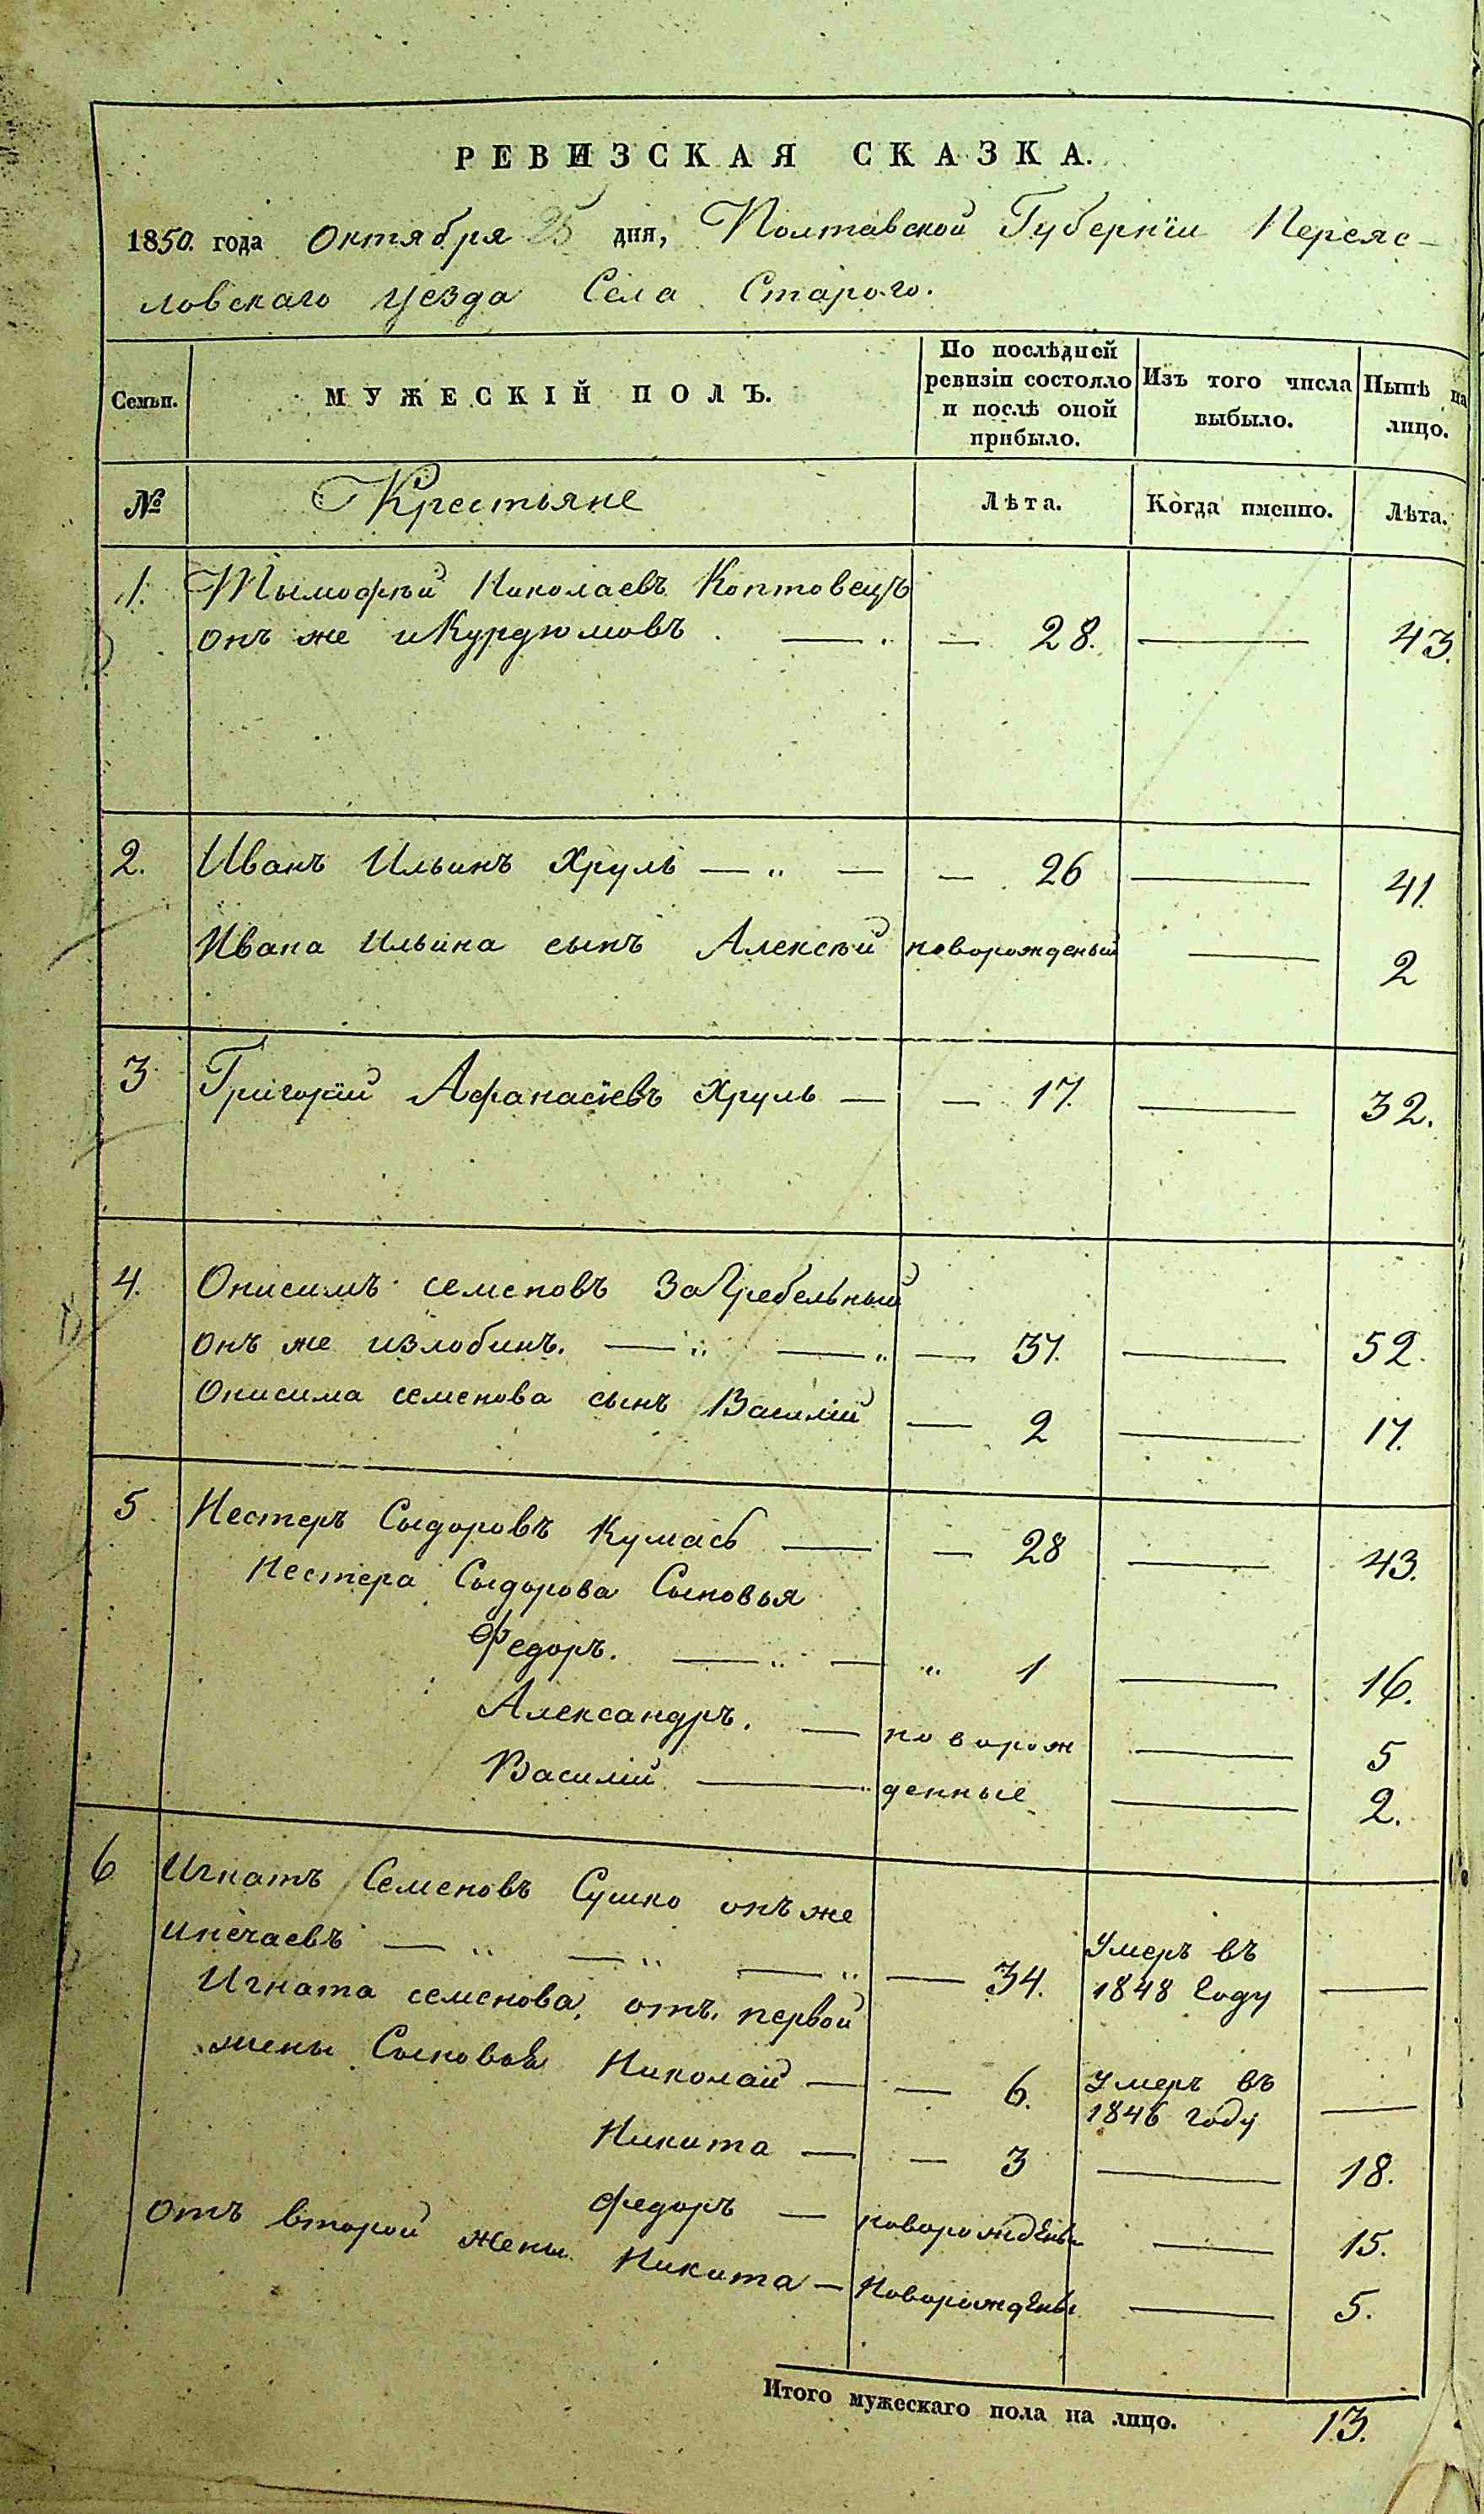 РЕВИЗСКАЯ СКАЗКА.
1850. года Октября 25 дня, Полтавской Губернїи Переяс-
ловскаго уезда Села Старого.
Семьи. МУЖЕСКІЙ ПОЛЪ. По послѣдней ревизіи состояло и послѣ оной прибыло. Изъ того числа выбыло. Нынѣ на лицо.
№ Крестьяне Лѣта. Когда именно. Лѣта.
1. Тымофѣй Николаевъ Коптовецъ
онъ же и Курдюмовъ — 28. — 43.
2. Иванъ Ильинъ Хруль — 26 — 41
Ивана Ильина сынъ Алексѣй новорожденый — 2
3 Григорїй Афанасїевъ Хруль — 17. — 32.
4. Онисимъ семеновъ Загребельный
онъ же излобинъ. — 37. — 52.
Онисима семенова сынъ Василїй — 2 — 17.
5 Нестеръ Сыдоровъ Кумась — 28 — 43.
Нестера Сыдорова Сыновья
Федоръ. — 1 — 16.
Александръ. — новорож — 5
Василїй — денные — 2.
6 Игнатъ Семеновъ Сушко онъ же
инечаевъ — 34. Умеръ въ 1848 Году —
Игната семенова, отъ первой
жены Сыновья Николай — 6. Умеръ въ 1846 году —
Никита — 3 — 18.
Федоръ — новорожденъ — 15.
отъ второй жены Никита — Новорожденъ — 5.
Итого мужескаго пола на лицо. 13.